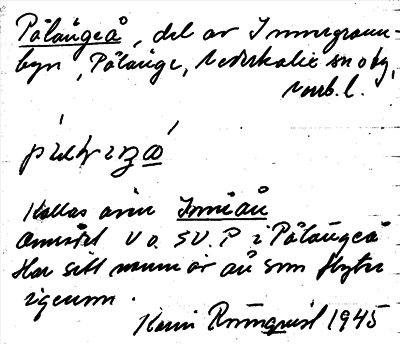 Pålängeå, del av Innergrann-
byn, Pålänge, Nederkalix snoby,
Norrb. l.
Kallas även Inniån
området V o. SV. P i Pålängeå
Har sitt namn av ån som flyter
igenom.
Karin Rönnqvist 1945